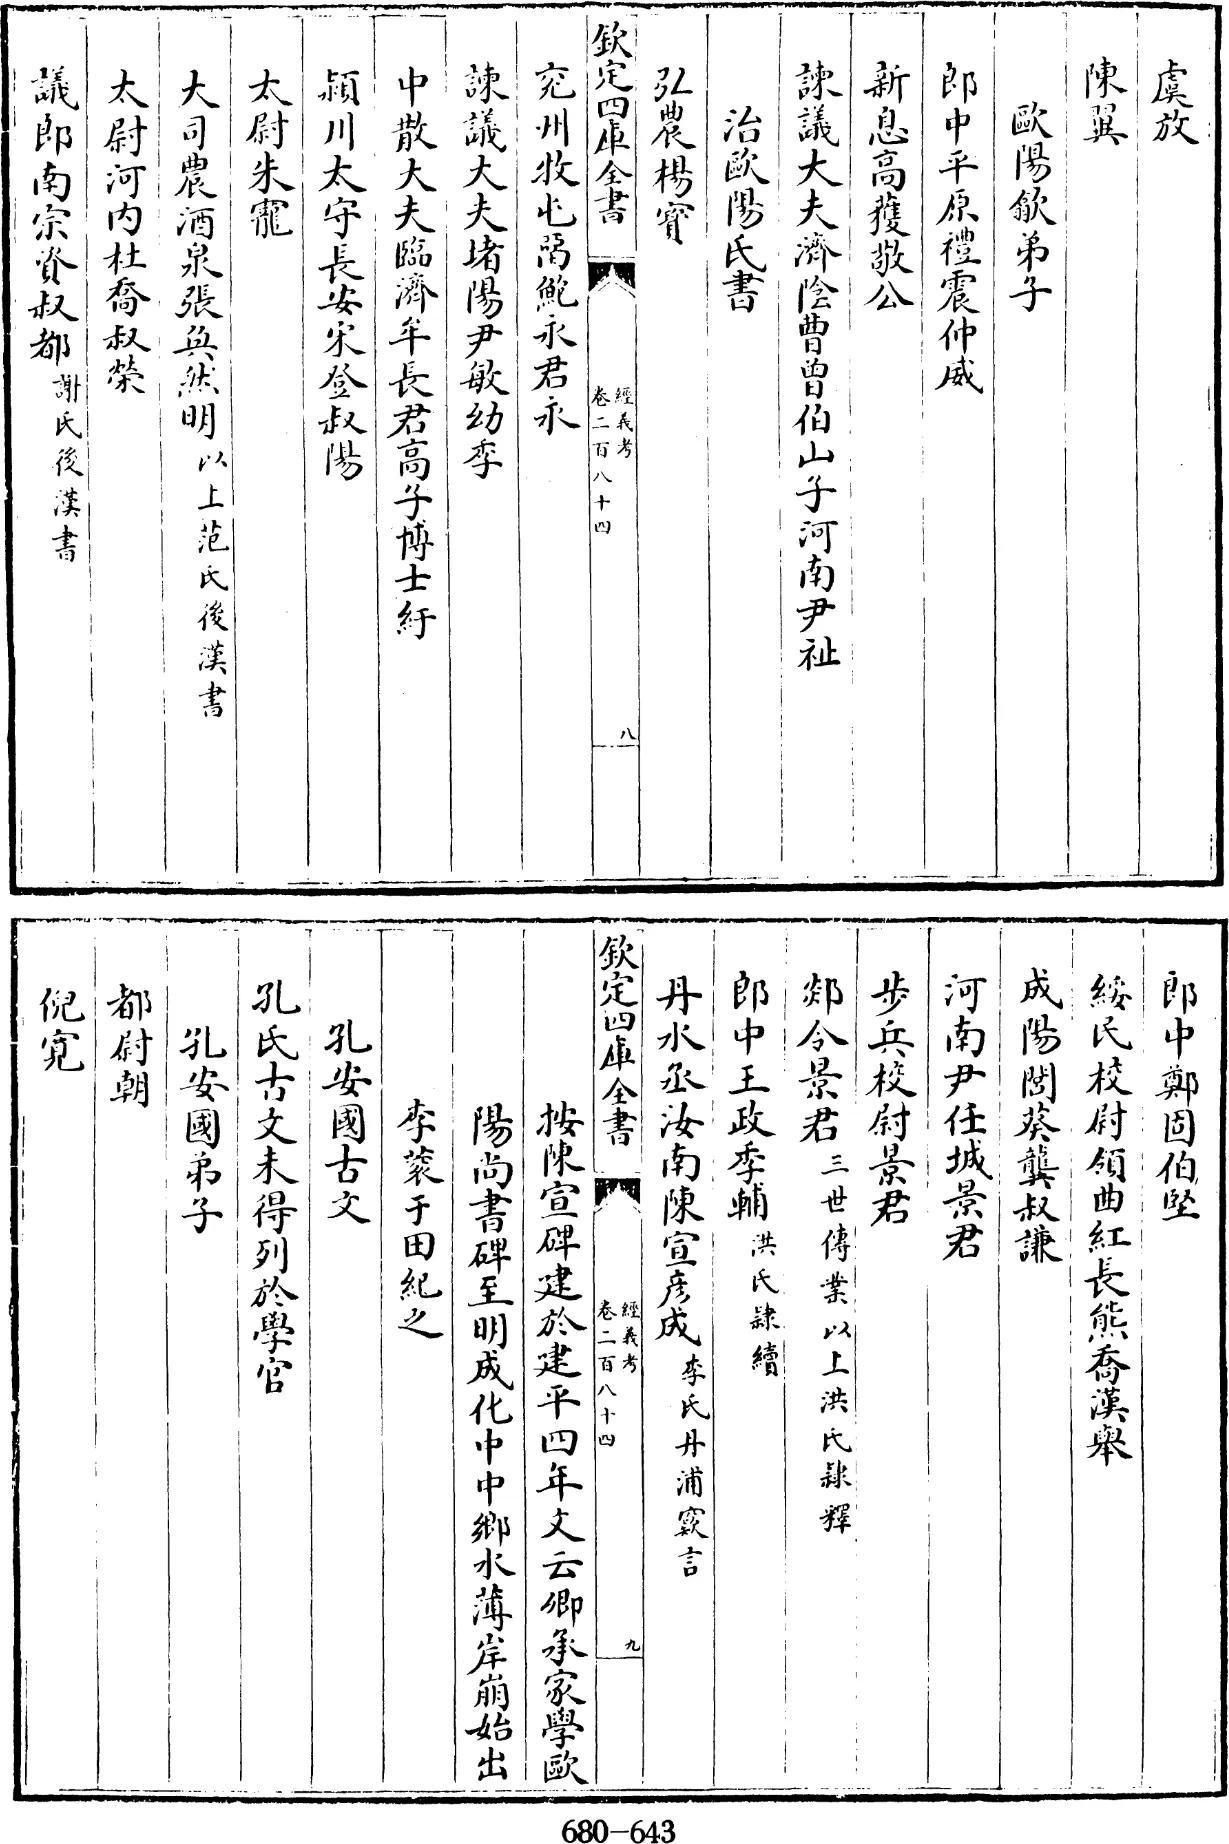 虞放
陳翼
歐陽歙弟子
郎中平原禮震仲威
新息高䕶敬公
諫議大夫濟隂曹曾伯山子河南尹祉
治歐陽氏書
弘農楊寳
欽定四庫全書
經義考
卷二百八十四
八
兖州牧屯留鮑永君永
諫議大夫堵陽尹敏幼季
中散大夫臨濟牟長君高子博士紆
潁川太守長安宋登叔陽
太尉朱寵
大司農酒泉張奐然明以上范氏後漢書
太尉河内杜喬叔榮
議郎南宗資叔都謝氏後漢書
郎中鄭固伯堅
綏民校尉領曲紅長熊喬漢舉
成陽閭葵龔叔謙
河南尹任城景君
步兵校尉景君
郯令景君三世傳業以上洪氏隸釋
郎中王政季輔洪氏隸續
丹水丞汝南陳宣彦成李氏丹浦窾言
欽定四庫全書
經義考
卷二百八十四
九
按陳宣碑建於建平四年文云卿承家學歐
陽尚書碑至明成化中中鄉水薄岸崩始出
李蓘于田紀之
孔安國古文
孔氏古文未得列於學官
孔安國弟子
都尉朝
倪寛
680-643